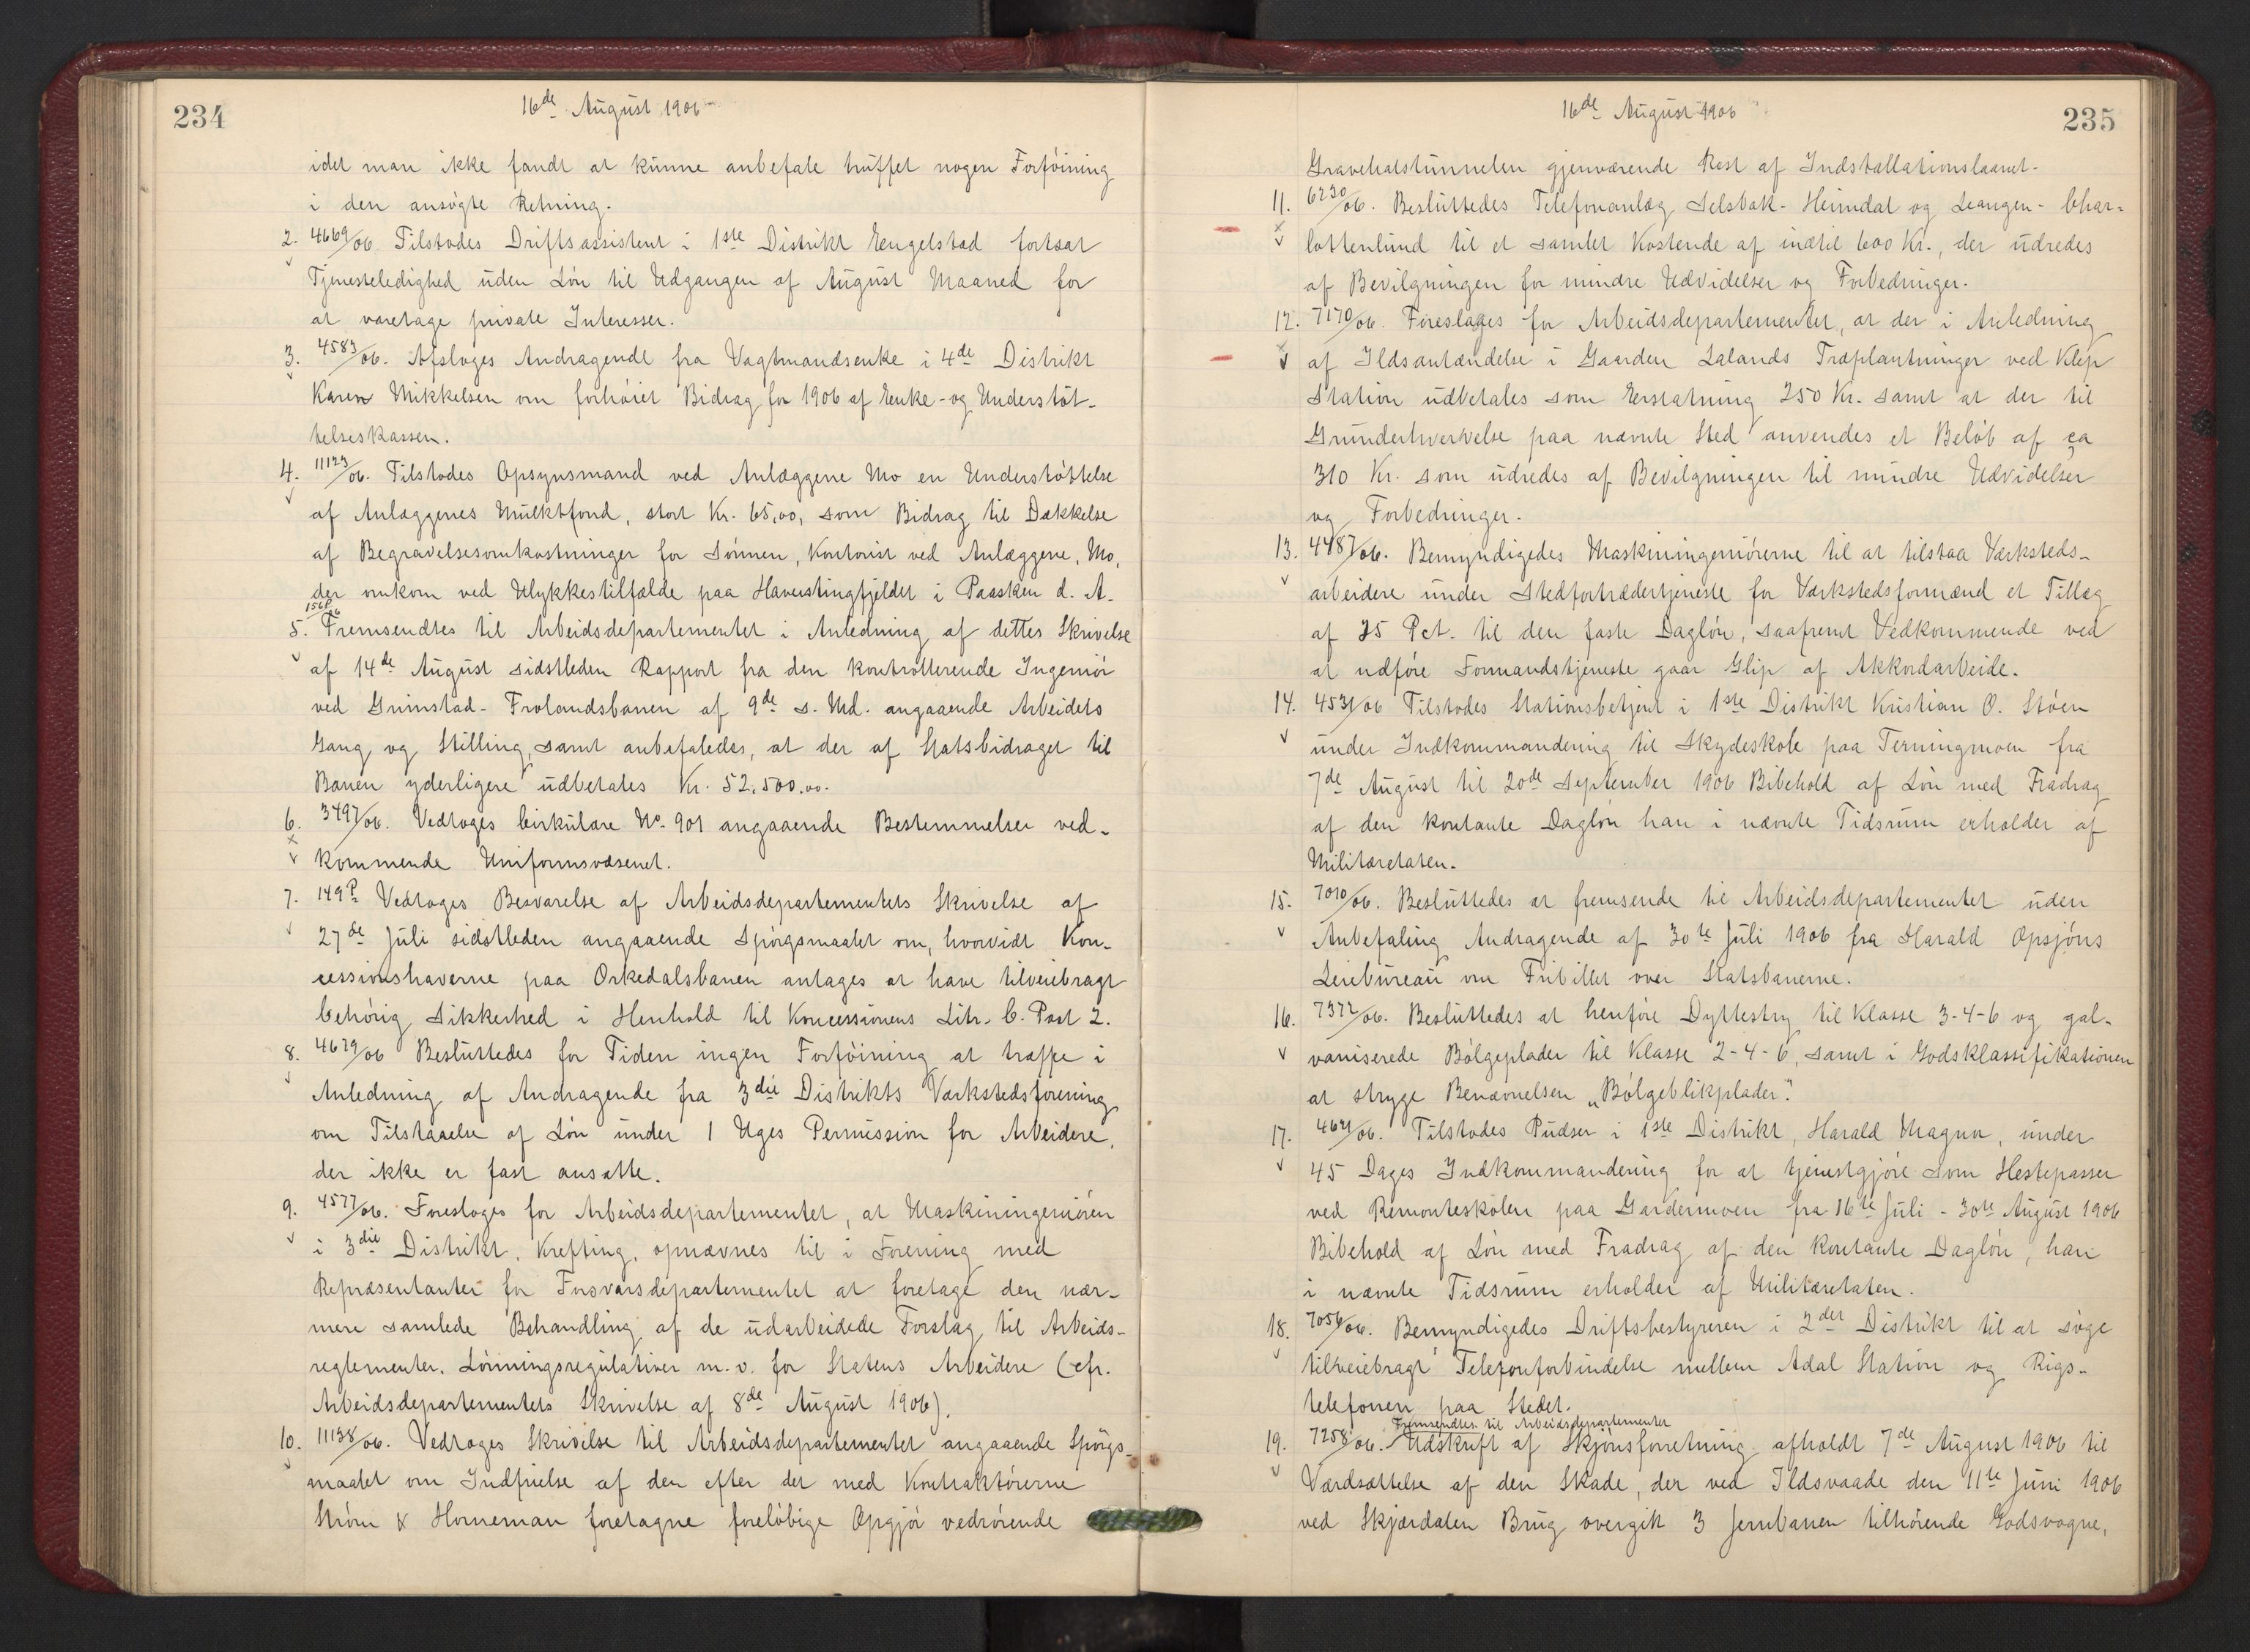 234
16de August 1906
idet man ikke fandt at kunne anbefale truffet nogen Forföining
i den ansögte Retning.
2. 4669/06. Tilstodes Driftsassistent i 1ste Distrikt Engelstad fortsat
Tjenesteledighed uden Lön til Udgangen af August Maaned for
at varetage private Interesser.
3. 4583/06. Afsloges Andragende fra Vagtmandsenke i 4de Distrikt
Karen Mikkelsen om forhöiet Bidrag for 1906 af Enke- og Understöt-
telseskassen.
4. 11123/06. Tilstodes Opsynsmand ved Anlæggene Mo en Understöttelse
af Anlæggenes Mulktfond, stort Kr. 65,00, som Bidrag til Dækkelse
af Begravelsesomkostninger for Sönnen, Kontorist ved Anlæggene, Mo,
der omkom ved Ulykkestilfælde paa Haverstingfjeldet i Paasken d. A.
5. 156P/06 Fremsendtes til Arbeidsdepartementet i Anledning af dettes Skrivelse
af 14de August sidstleden Rapport fra den kontrollerende Ingeniör
ved Grimstad-Frolandsbanen af 9de s. Md. angaaende Arbeidets
Gang og Stilling, samt anbefaledes, at der af Statsbidraget til
Banen yderligere udbetales Kr. 52.500.00.
6. 3497/06. Vedtoges Cirkulære No. 901 angaaende Bestemmelser ved-
kommende Uniformsvæsenet.
7. 149P Vedtoges Besvarelse af Arbeidsdepartementets Skrivelse af
27de Juli sidstleden angaaende Spörgsmaalet om, hvorvidt Kon-
cessionshaverne paa Orkedalsbanen antages at have tilveiebragt
behörig Sikkerhed i Henhold til Koncessionens Litr. C. Post 2.
8. 4679/06 Besluttedes for Tiden ingen Forföining at træffe i
Anledning af Andragende fra 3die Distrikts Værkstedsforening
om Tilstaaelse af Lön under 1 Uges Permission for Arbeidere,
der ikke er fast ansatte.
9. 4577/06. Foresloges for Arbeidsdepartementet, at Maskiningeniören
i 3die Distrikt, Krefting, opnævnes til i Forening med
Repræsentanter for Forsvarsdepartementet at foretage den nær-
mere samlede Behandling af de udarbeidede Forslag til Arbeids-
reglementer, Lönningsregulativer m.v. for Statens Arbeidere (cfr.
Arbeidsdepartementets Skrivelse af 8de August 1906).
10. 11138/06. Vedtoges Skrivelse til Arbeidsdepartementet angaaende Spörgs-
maalet om Indfrielse af den efter det med Kontraktörerne
Ström & Horneman foretagne forelöbige Opgjör vedrörende
235
16de August 1906
Gravehalstunnelen gjenværende Rest af Installationslaanet.
11. 6230/06. Besluttedes Telefonanlæg Selsbak-Heimdal og Leangen-Char-
lottenlund til et samlet Kostende af indtil 600 Kr., der udredes
af Bevilgningen for mindre Udvidelser og Forbedringer.
12. 7170/06. Foreslages for Arbeidsdepartementet, at der i Anledning
af Ildsantændelse i Gaarden Lalands Træplantninger ved Klep
Station udbetales som Erstatning 250 Kr. samt at der til
Grunderhvervelse paa nævnte Sted anvendes et Belöb af ca
310 Kr. som udredes af Bevilgningen til mindre Udvidelser
og Forbedringer.
13. 4487/06. Bemyndigedes Maskiningeniörerne til at tilstaa Værksteds-
arbeidere under Stedfortrædertjeneste for Værkstedsformænd et Tillæg
af 25 Pct. til den faste Daglön, saafremt Vedkommende ved
at udföre Formandstjeneste gaar Glip af Akkordarbeide.
14. 4531/06 Tilstodes Stationsbetjent i 1ste Distrikt Kristian O. Stöen
under Indkommandering til Skydeskole paa Terningmoen fra
7de August til 20de September 1906 Bibehold af Lön med Fradrag
af den kontante Daglön han i nævnte Tidsrum erholder af
Militæretaten.
15. 7010/06. Besluttedes at fremsende til Arbeidsdepartementet uden
Anbefaling Andragende af 30te Juli 1906 fra Harald Opsjöns
Leiebureau om Fribillet over Statsbanerne.
16. 7372/06. Besluttedes at henföre Dyttestry til Klasse 3-4-6 og gal-
vaniserede Bölgeplader til Klasse 2-4-6, samt i Godsklassifikationen
at stryge Benævnelsen „Bölgeblikplader".
17. 4621/06. Tilstodes Pudser i 1ste Distrikt, Harald Magna, under
45 Dages Indkommandering for at tjenestgjöre som Hestepasser
ved Remonteskolen paa Gardermoen fra 16te Juli - 30te August 1906
Bibehold af Lön med Fradrag af den kontante Daglön, han
i nævnte Tidsrum erholder af Militæretaten.
18. 7056/06. Bemyndigedes Driftsbestyreren i 2det Distrikt til at söge
tilveiebragt Telefonforbindelse mellem Aadal Station og Rigs-
telefonen paa Stedet.
Fremsendtes til Arbeidsdepartementet
19. 7258/06. Udskrift af Skjönsforretning afholdt 7de August 1906 til
Værdsættelse af den Skade, der ved Ildsvaade den 11te Juni 1906
ved Skjærdalen Brug overgik 3 Jernbanen tilhörende Godsvogne,